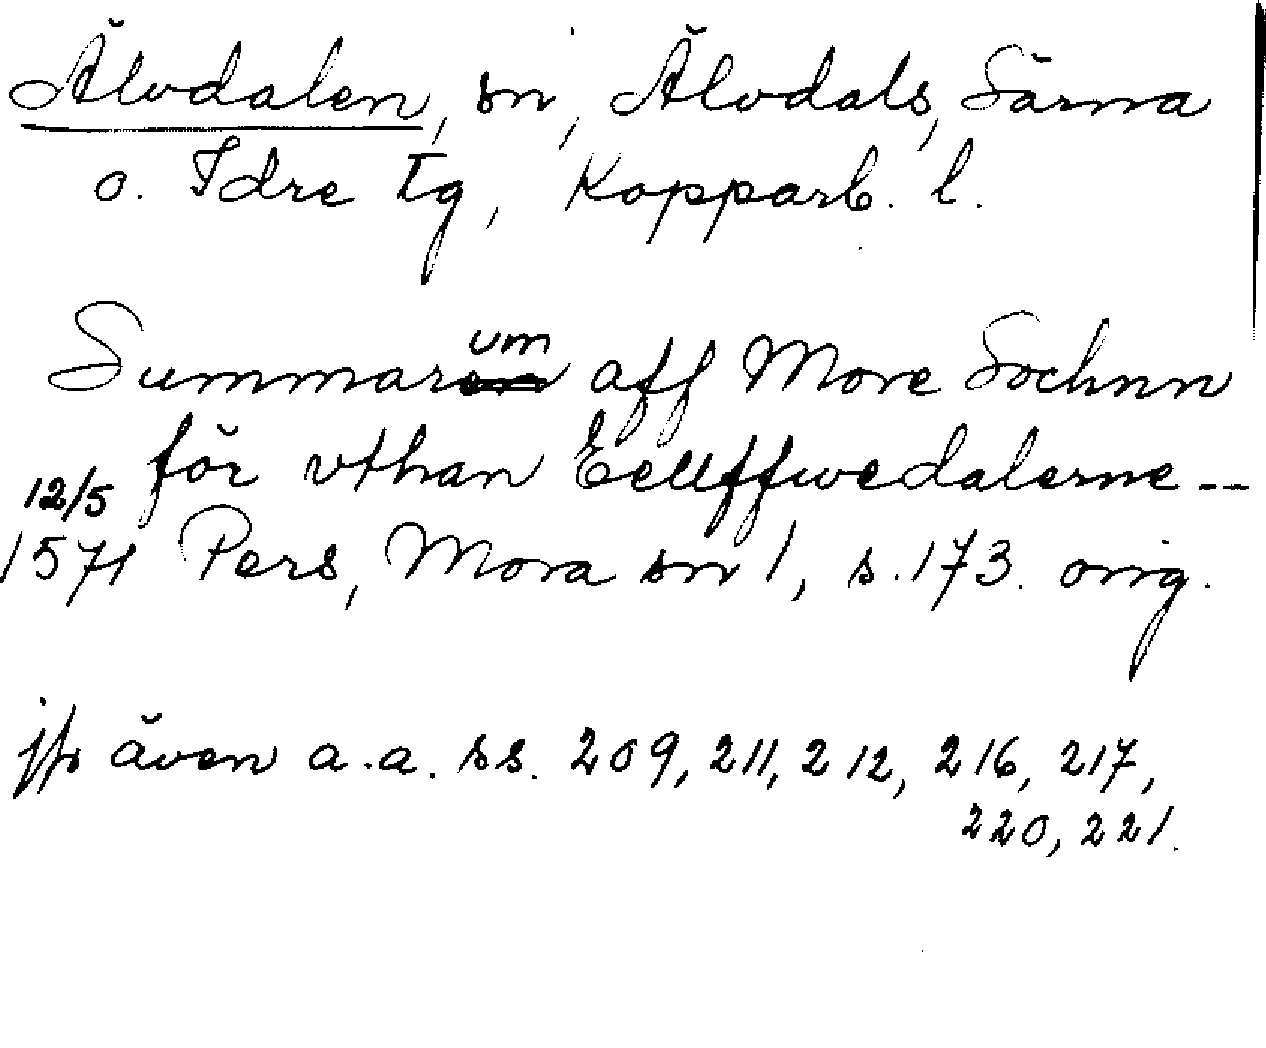 Älvdalen, sn, Älvdals, Särna
o. Idre tg, Kopparb. l.
Summarum aff More Sochnn
för vthan Eellffwedalerne --
12/5
1571 Pers, Mora sn 1, s. 173. orig.
jfr även a.a. ss. 209, 211, 212, 216, 217,
220, 221.